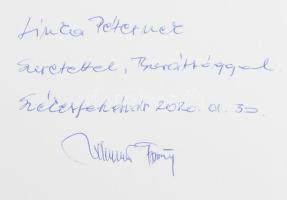 Linka Péternek
Szeretettel, Barátsággal
Székesfehérvár 2020. 01. 30.